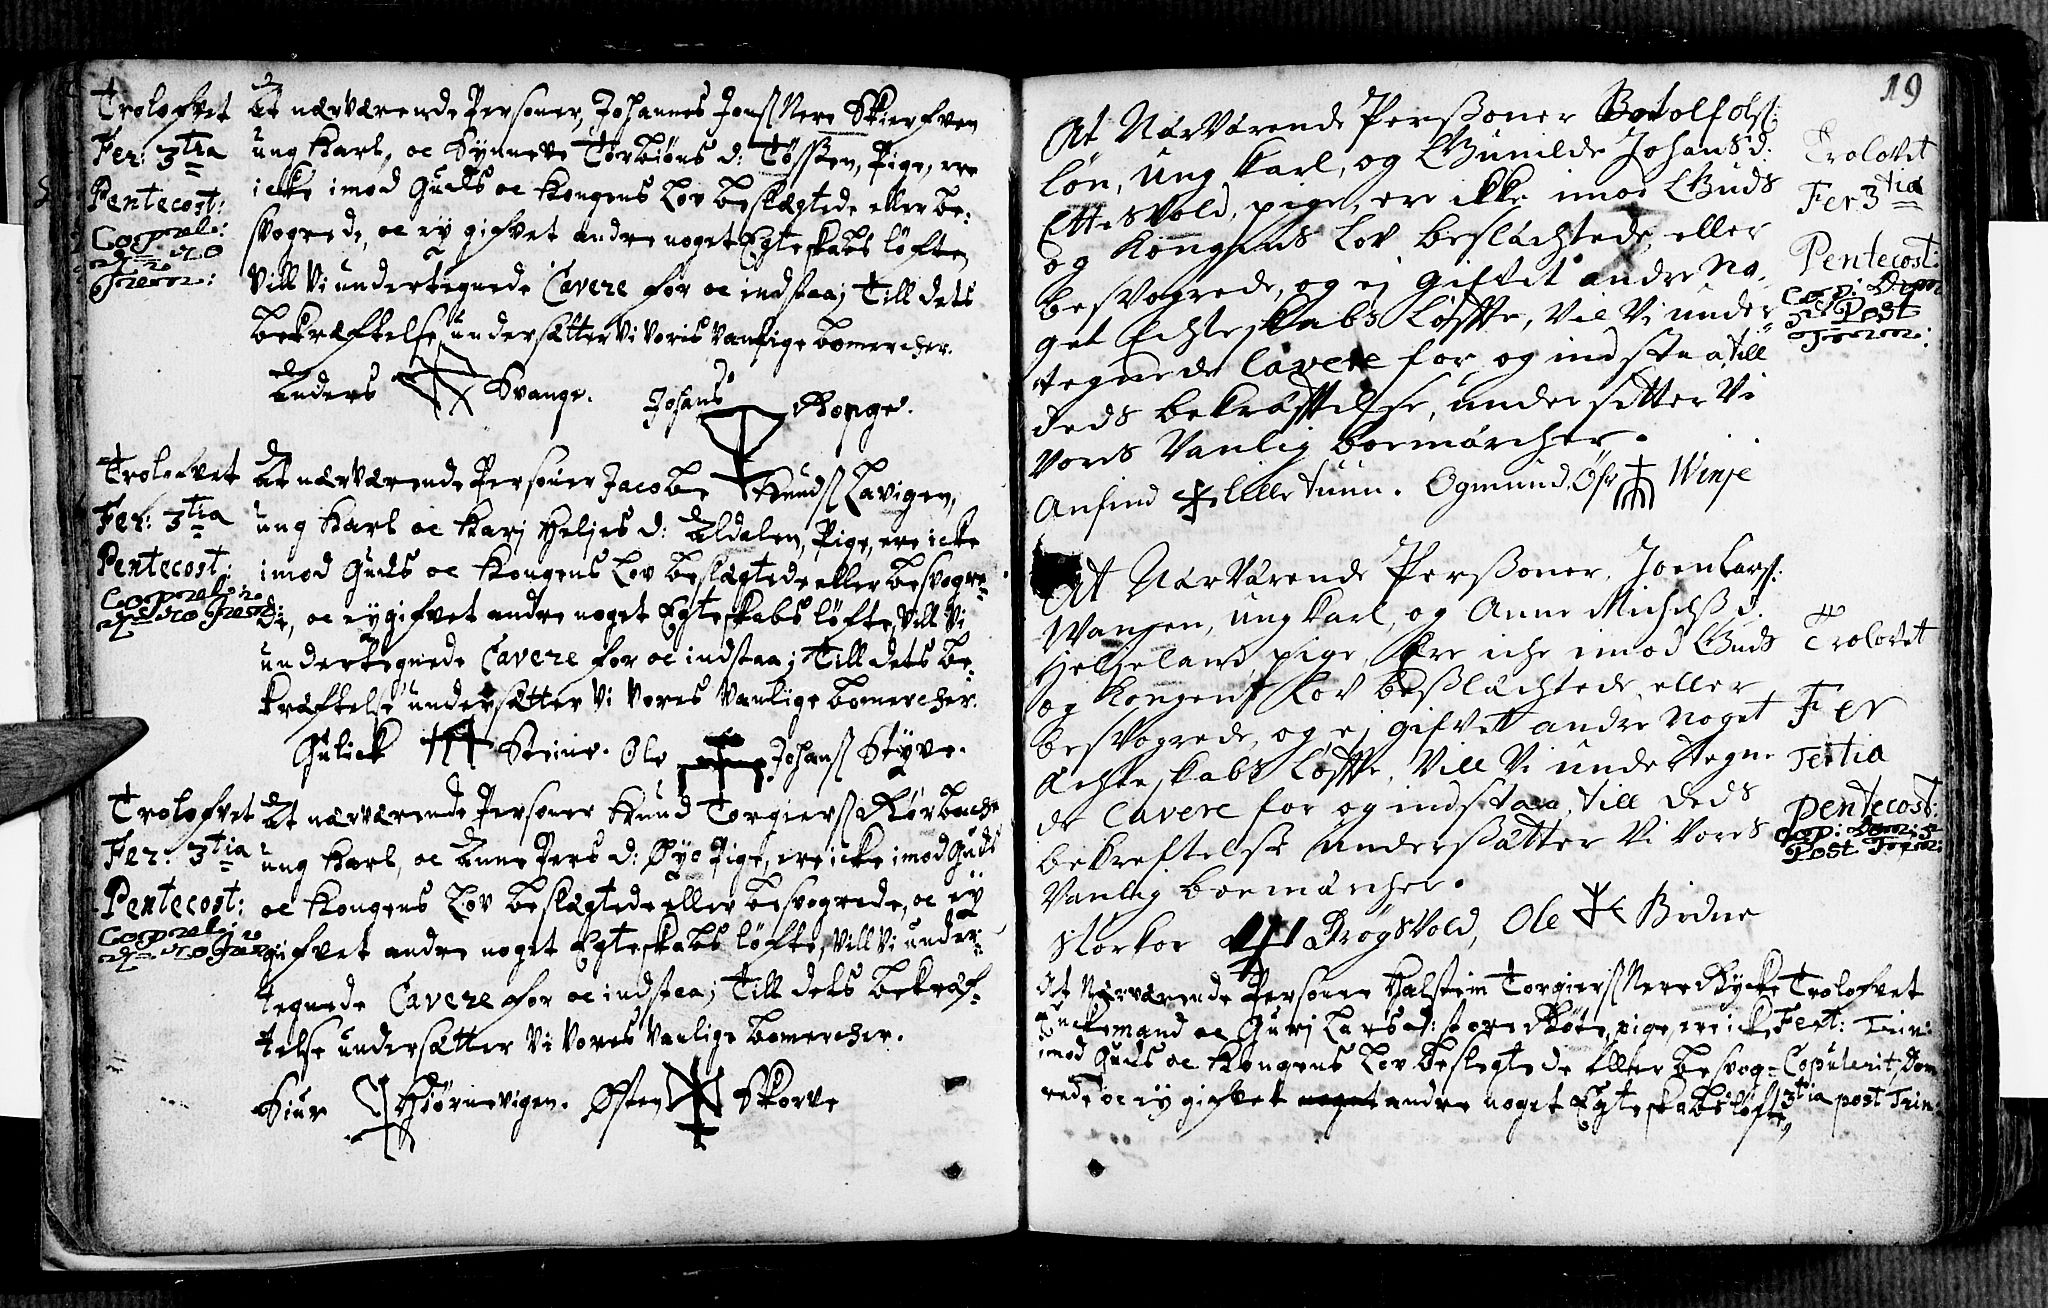 Trolofvet
Fer: 3tia
Pentecost:
At nærværende Personer, Johannes Jons Nere Skierfven
ung Karl, oc Synneve Torbiøns d: Tøssen, Pige, ere
icke imod Guds oc Kongens Lov beslægtede eller be-
svogrede, oc ey gifvet andre noget Egteskabs løfte,
Vill Vi undertegnede Cavere for oc indstaa; Till dets
bekræftelse undersætter Vi Voris Vanlige bomercher.
Anders Svange. Johans Ronge.
Trolofvet
Fer: 3tia
Pentecost:
At nærværende Personer Jacob Knuds Lavigen,
ung Karl oc Karj Heljes d: Aldalen, Pige, ere icke
imod Guds oc Kongens Lov beslægtede eller besvogre-
de, oc ey gifvet andre noget Egteskabs løfte, Vill Vi
undertegnede Cavere for oc indstaa; Till dets be-
kræftelse undersætter Vi Vores Vanlige bomercher.
Gulick Steine. Ole Johans Styve.
Trolofvet
Fer: 3tia
Pentecost:
At nærværende Personer Knud Torgiers Rørbache
ung Karl, oc Anne Pers d: Øye Pige, ere icke imod Guds
oc Kongens Lov beslægtede eller besvogrede, oc ey
gifvet andre noget Egteskabs løfte, Vill Vi under-
tegnede Cavere for oc indstaa; Till dets bekræf-
telse undersætter Vi Vores Vanlige bomercher.
Siur Hiørnevigen. Østen Skorve
19
At Nærværende Perßoner Botolf Ols:
Løn, Ung Karl, og Gunilde Johans d:
Ettesvold, pige, ere ikke imod Guds
og Kongens Lov beslächtede, eller
besvogrede, og ej Giffvet andre No-
get Echteskabs Løffte, Vil Vi under-
tegnede Cavere for, og indstaa, till
deds bekräfftelse, undersetter Vi
Vores Vanlig boemärcher.
Anfind Lilletuun. Ogmund Øfr Winje
Trolovet
Fer 3tia
Pentecost:
Post
At Nærvärende Perßoner, Joen Lars:
Wangen, ung karl, og Anne Michels d:
Helgeland pige, ere iche imod Guds
og Kongens Lov beßlächtede, eller
besvogrede, og ej gifvet andre Noget
Echteskabs Løffte, Vill Vi undertegne
de Cavere for og indstaa, till deds
bekreftelse underßätter Vi Vores
Vanlig boemärcher.
Storkor Drøgsvold, Ole Bidne
Trolovet
Fer
Tertia
pentecost:
Cop: Dom: 5
Post Trin:
At Nærværende Personer Halstein Torgiers Nere Rycke
Enckemand oc Guri Lars d: store Røte, pige, ere icke
imod Guds oc Kongens Lov beslegtede Eller besvog-
rede oc ey gifvet noget andre noget Egteskabs løfte,
Trolofvet
Fest: Trin:
Copulerit, Dom
3tia post Trin: